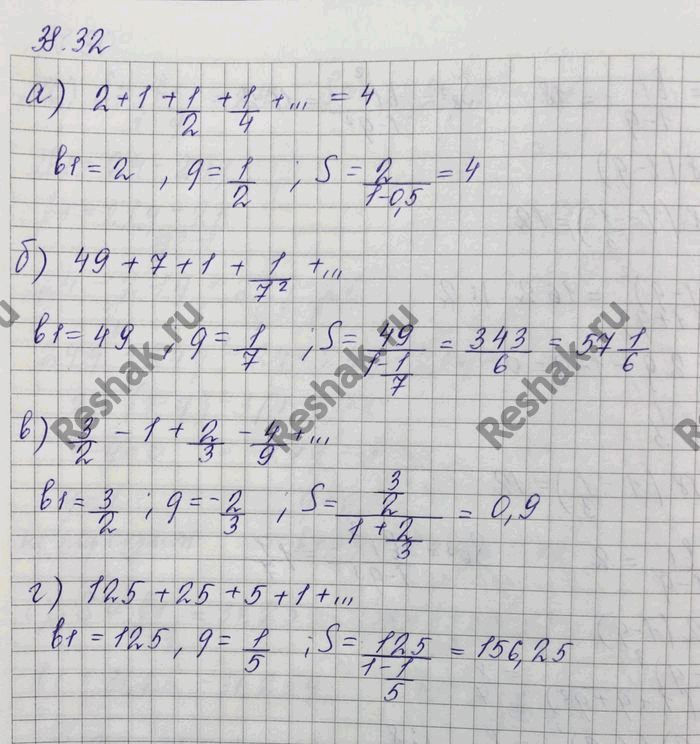 38.32
а) 2 + 1 + 1/2 + 1/4 + ... = 4
b1 = 2 , q = 1/2 ; S = 2/(1-0,5) = 4
б) 49 + 7 + 1 + 1/7² + ...
b1 = 49 , q = 1/7 ; S = 49/(1-1/7) = 343/6 = 57 1/6
в) 3/2 - 1 + 2/3 - 4/9 + ...
b1 = 3/2 ; q = -2/3 ; S = (3/2)/(1+2/3) = 0,9
г) 125 + 25 + 5 + 1 + ...
b1 = 125 , q = 1/5 ; S = 125/(1-1/5) = 156,25
Reshak.ru
Reshak.ru
Reshak.ru